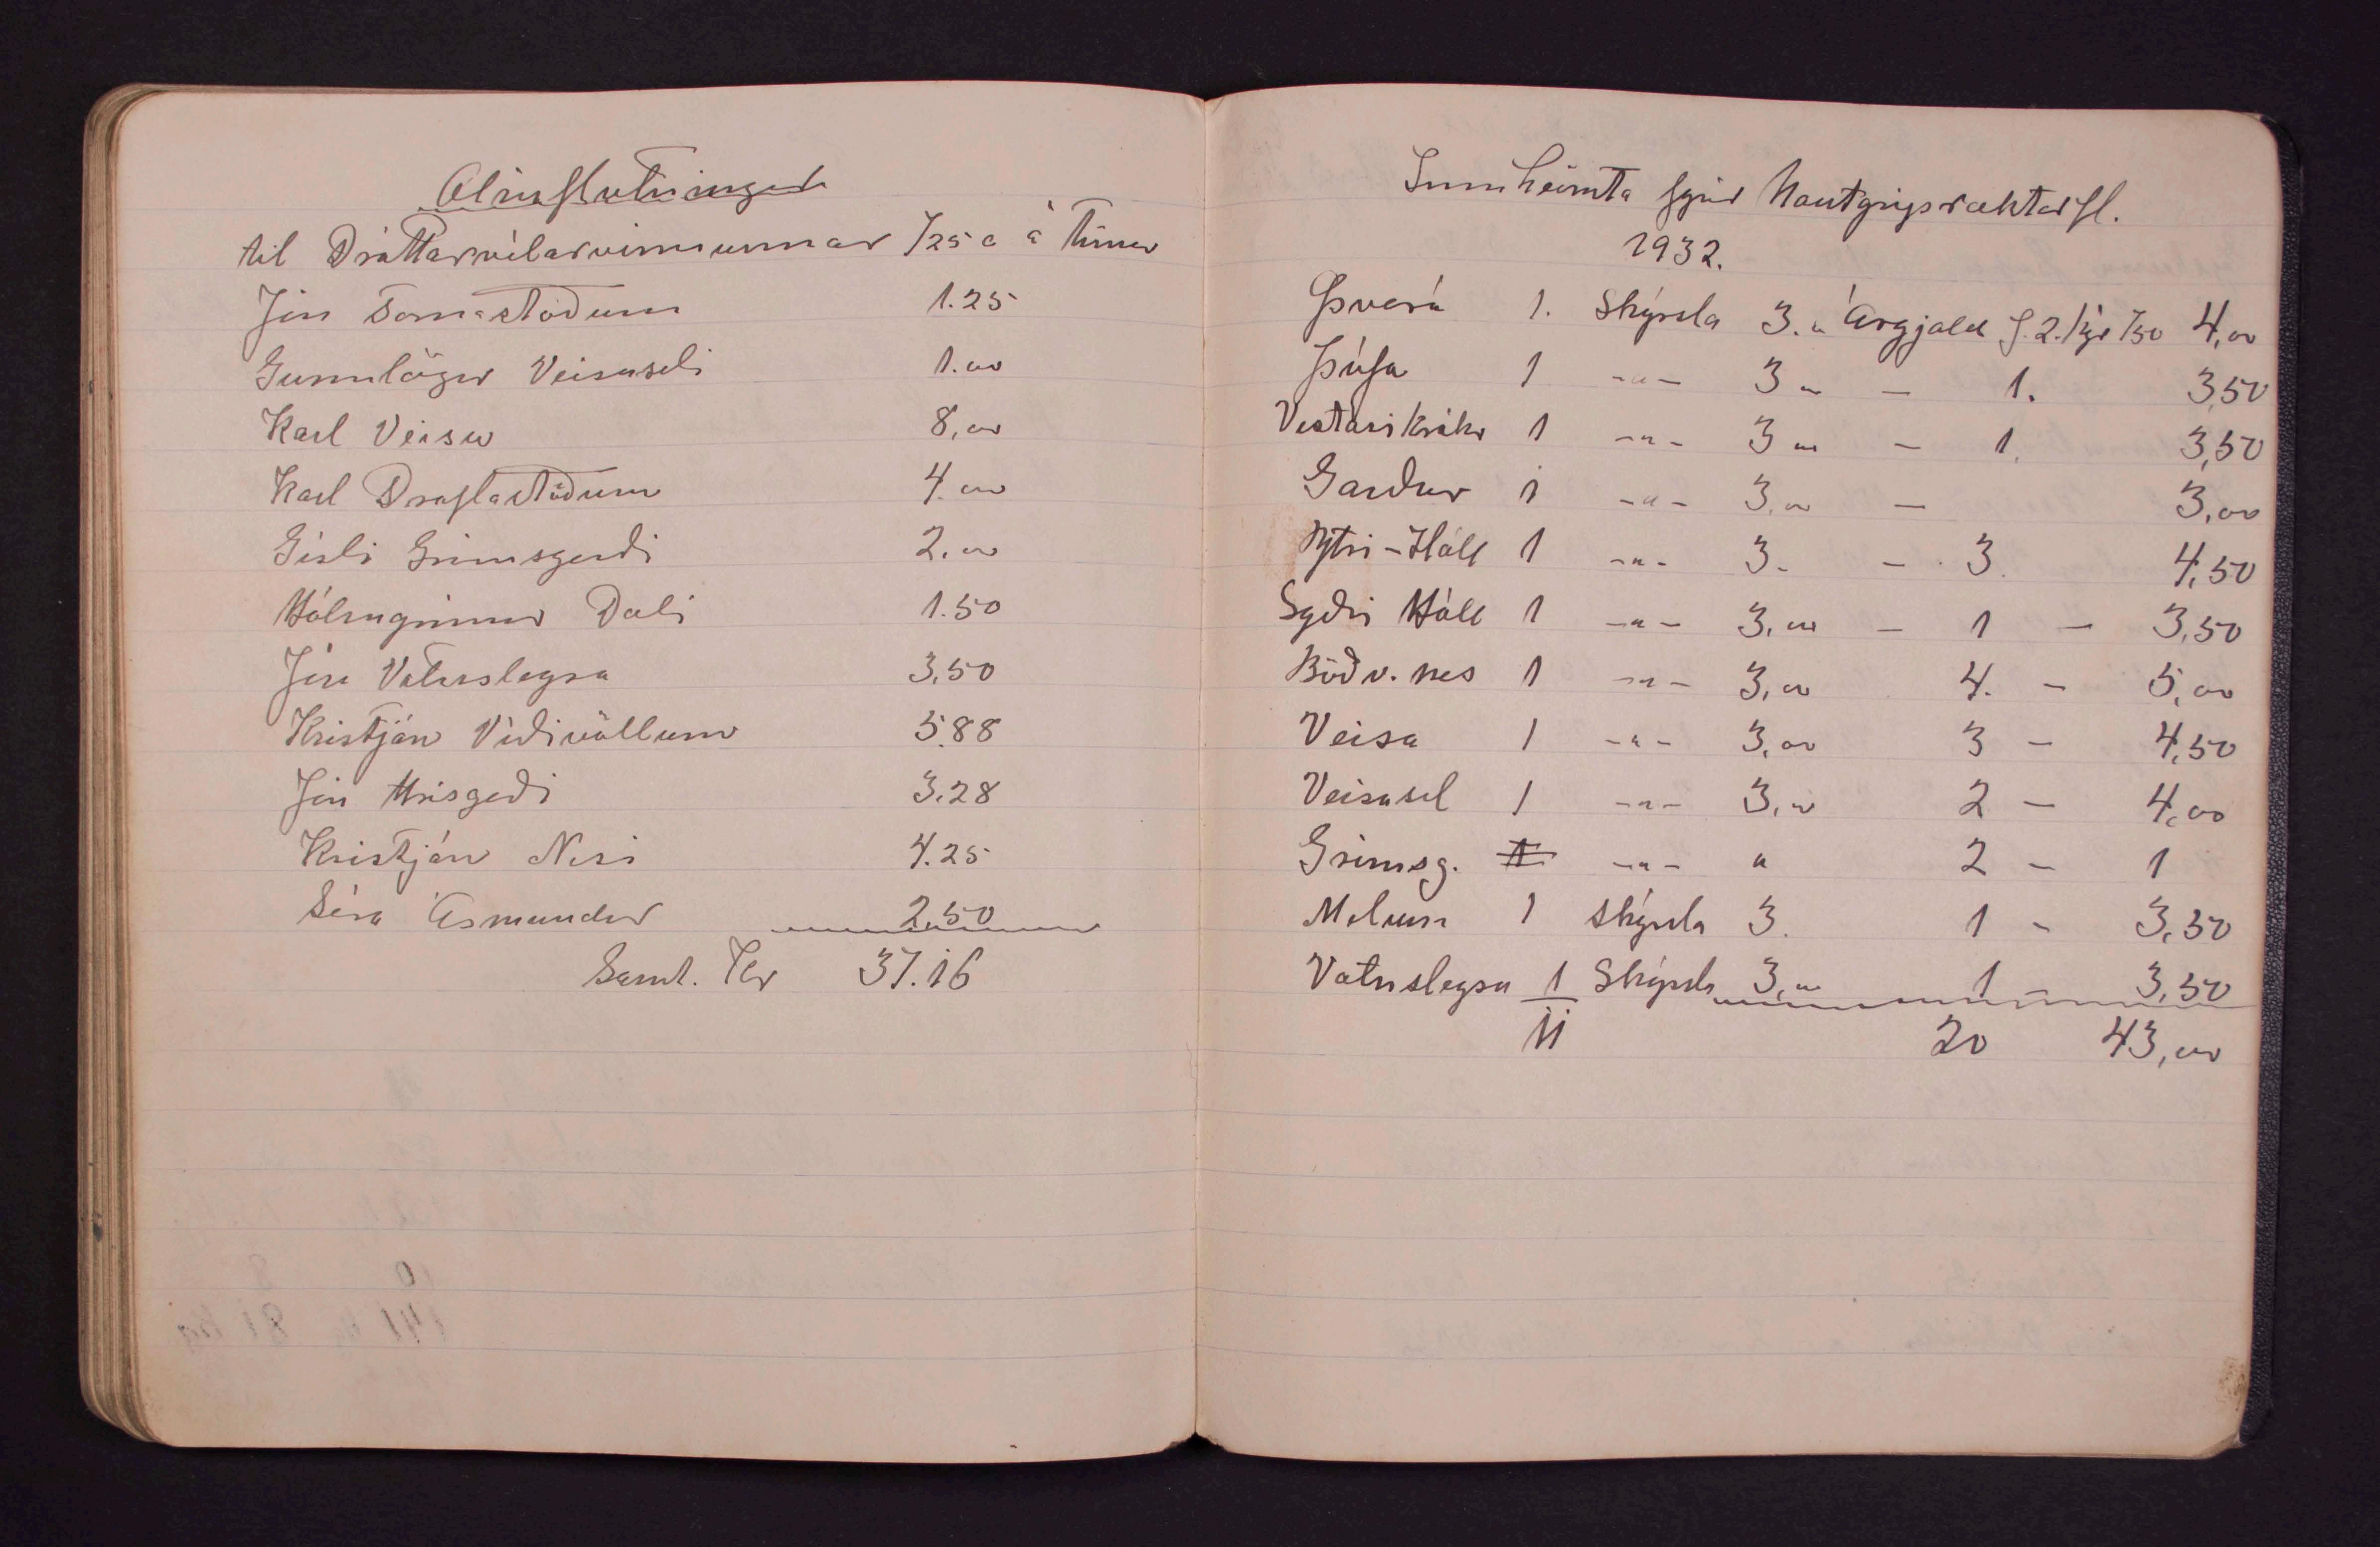 Olíuflutningur
til Dráttarvélarvinnunnar /25 a á Tíman
Jón Tornastöðum 1.25
Gunnlögur Veisuseli 1.00
Karl Veisu 8,00
Karl Draflastöðum 4.00
Gísli Grímsgerði 2.00
Hólmgrímur Dali 1.50
Jón Vatnsleysu 3,50
Kristján Víðivöllum 5.88
Jón Hrísgeði 3.28
Kristján Nesi 4.25
Séra Ásmundur 2,50
Saml. Kr 37.16
Innheimta fyrir Nautgripsræktarfl.
1932.
Þverá 1. Skýrsla 3.00 Árgjald f. 2. kýr /50 4,00
Þúfa 1 -"- 3 00 - 1. 3,50
Vestari Krókr 1 -"- 3 00 - 1. 3,50
Garður 1 -"- 3,00 - 3,00
Ytri-Hóll 1 -"- 3. - 3. 4,50
Syðri Hóll 1 -"- 3,00 - 1 - 3,50
Böðv. nes 1 -"- 3,00 4. - 5,00
Veisa 1 -"- 3,00 3 - 4,50
Veisusel 1 -"- 3,00 2 - 4,00
Grímsg. 1 -"- " 2 - 1
Melum 1 skýrsla 3. 1 - 3,50
Vatnsleysu 1 Skýrsla 3,00 1 - 3,50
11 20 43,00